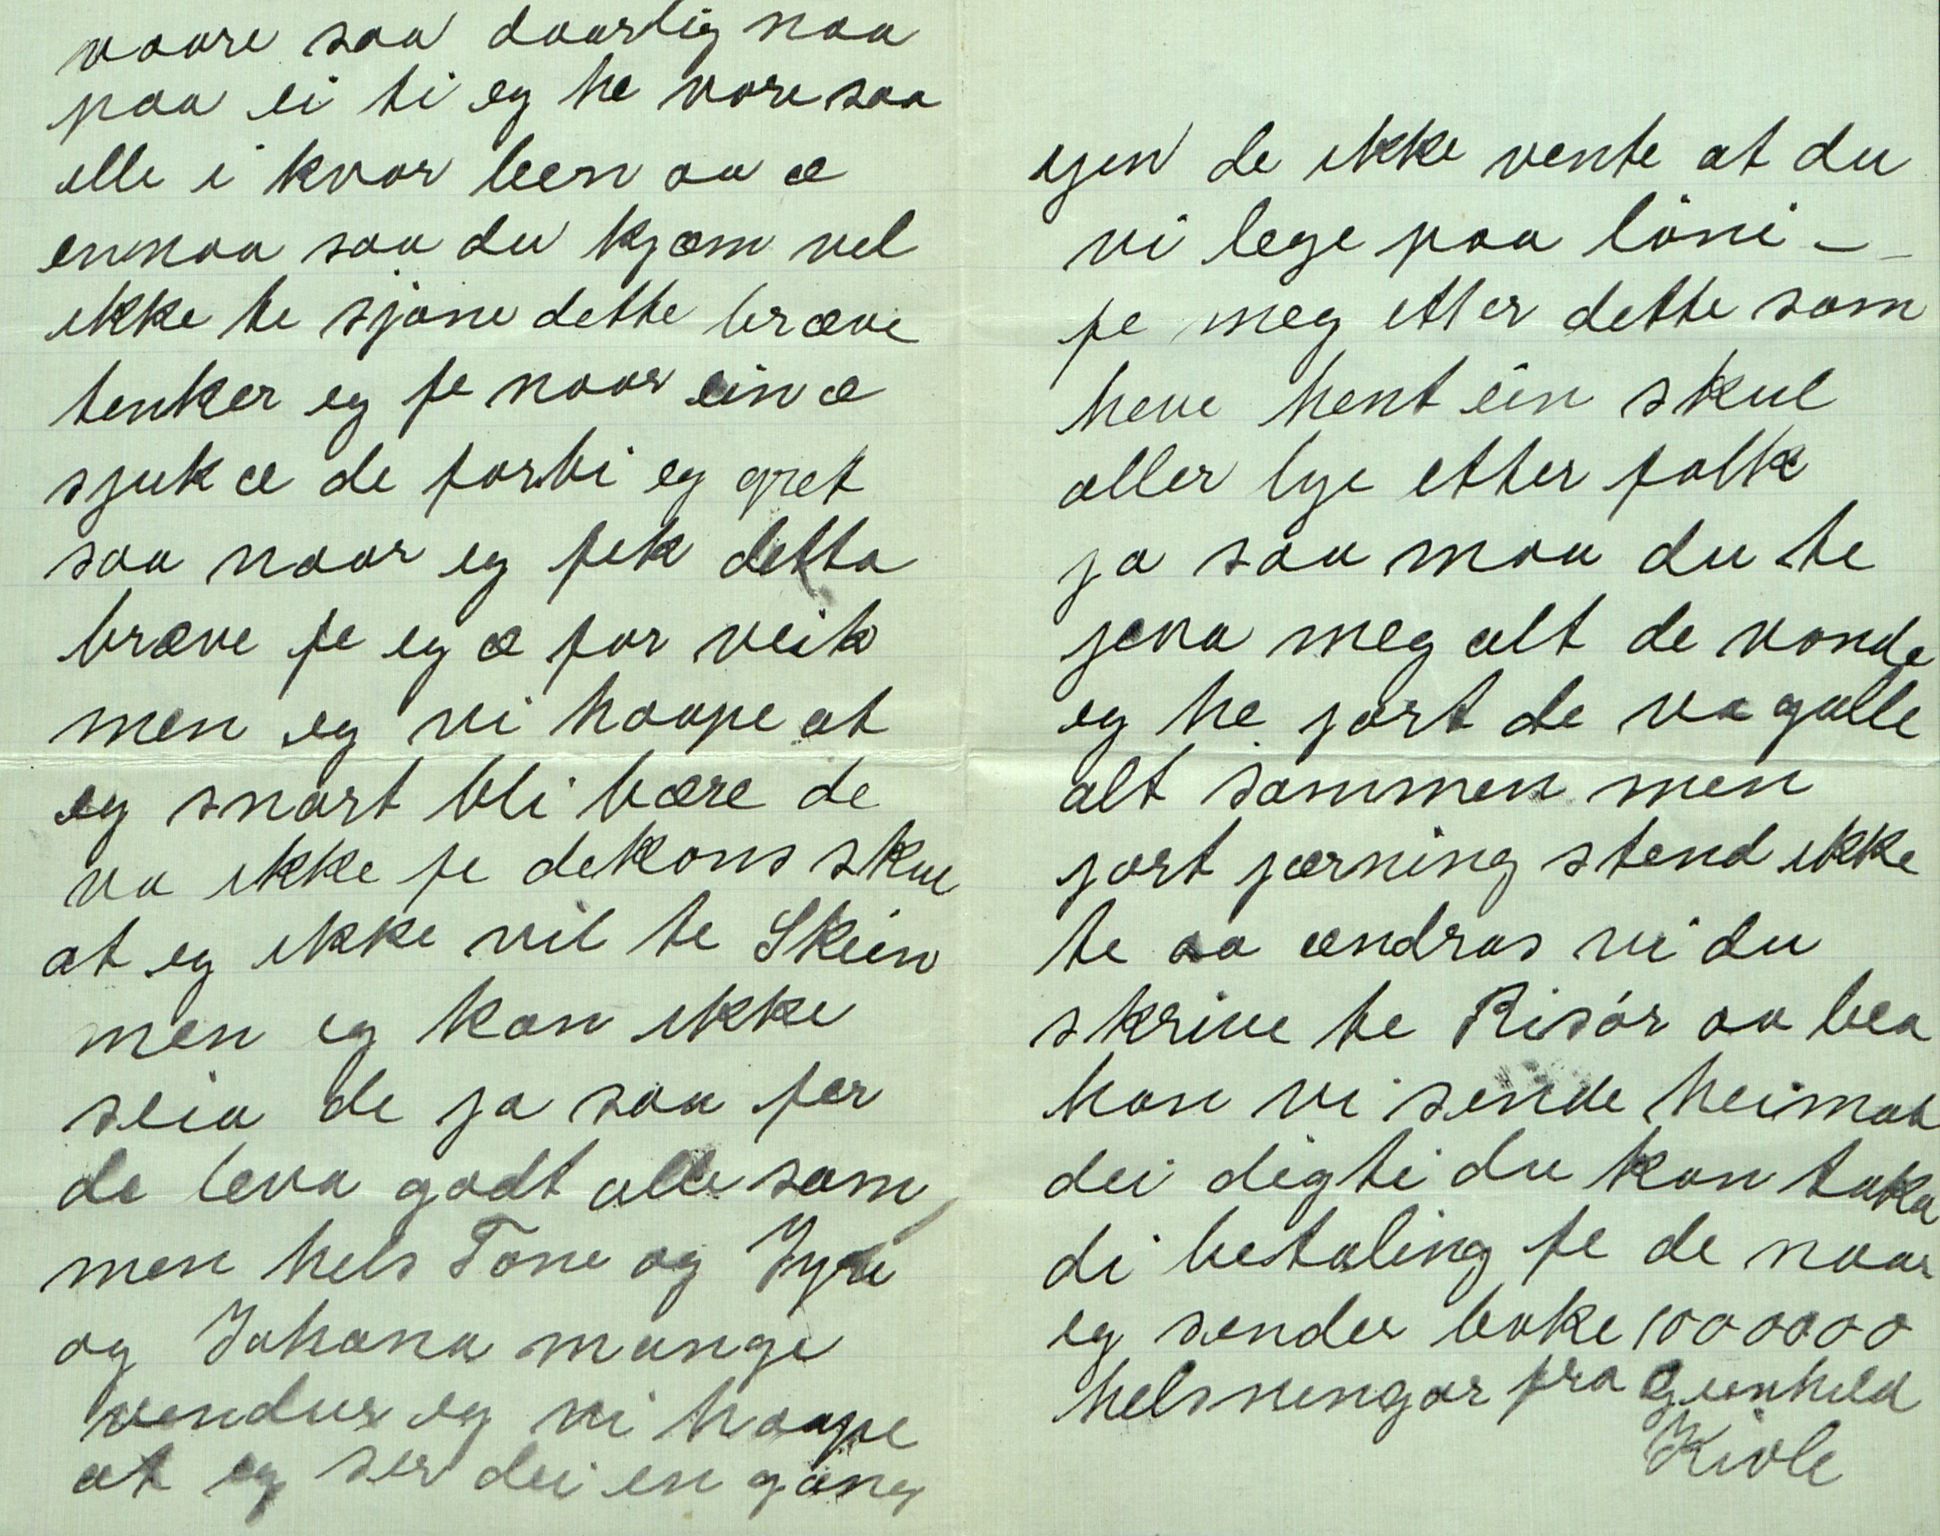 vaare saa daarlig naa
paa ei ti eg he vore saa
elle i kvar been aa æ
ennaa saa du kjæm vel
ikke te sjøne dette bræve
tenker eg fe naar ein æ
sjuk æ de forbi eg gret
saa naar eg fek detta
bræve fe eg æ for veik
men eg vi haape at
eg snart bli bære de
va ikke fe dekons skul
at eg ikke vil te Skien
men eg kan ikke
seia de ja saa fær
de leva godt alle sam
men hels Tone og Jyri
og Johana mange
vendur eg vi haape
at eg ser dei en gang
igen de ikke vente at du
vi lege paa löni —
fe meg etter dette som
heve hent ein skul
aller lye etter folk
ja saa maa du te
jeva meg alt de vonde
eg he jort de va galle
alt sammen men
jort jærning stend ikke
te aa ændras vi du
skrive te Risör aa bea
han vi sende heimat
dei digte du kan taka
di betaling fe de naar
eg sender bake 1000000
helsningar fra Gunhild
Kivle